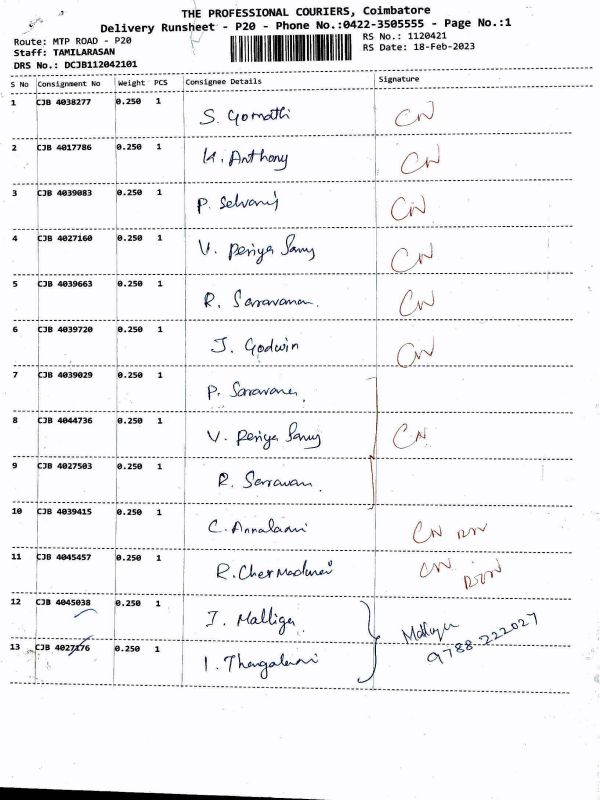 THE PROFESSIONAL COURIERS, Coimbatore
Delivery Runsheet - P20 - Phone No.:0422-3505555 - Page No.:1
Route: MTP ROAD - P20
RS No.: 1120421
Staff: TAMILARASAN
RS Date: 18-Feb-2023
DRS No.: DCJB112042101
S No Consignment No Weight PCS Consignee Details Signature
1 CJB 4038277 0.250 1 S. Gomathi CN
2 CJB 4017786 0.250 1 K. Anthony CN
3 CJB 4039083 0.250 1 P. Selvaraj CN
4 CJB 4027160 0.250 1 V. Periya Samy CN
5 CJB 4039663 0.250 1 R. Saravanan. CN
6 CJB 4039720 0.250 1 J. Godwin CN
7 CJB 4039029 0.250 1 P.
8 CJB 4044736 0.250 1 V. Periya Samy CN
9 CJB 4027503 0.250 1 R.
10 CJB 4039415 0.250 1 C. CN
11 CJB 4045457 0.250 1 R. CN
12 CJB 4045038 0.250 1 J. Malliga
9788-222027
13 CJB 4027176 0.250 1 I.